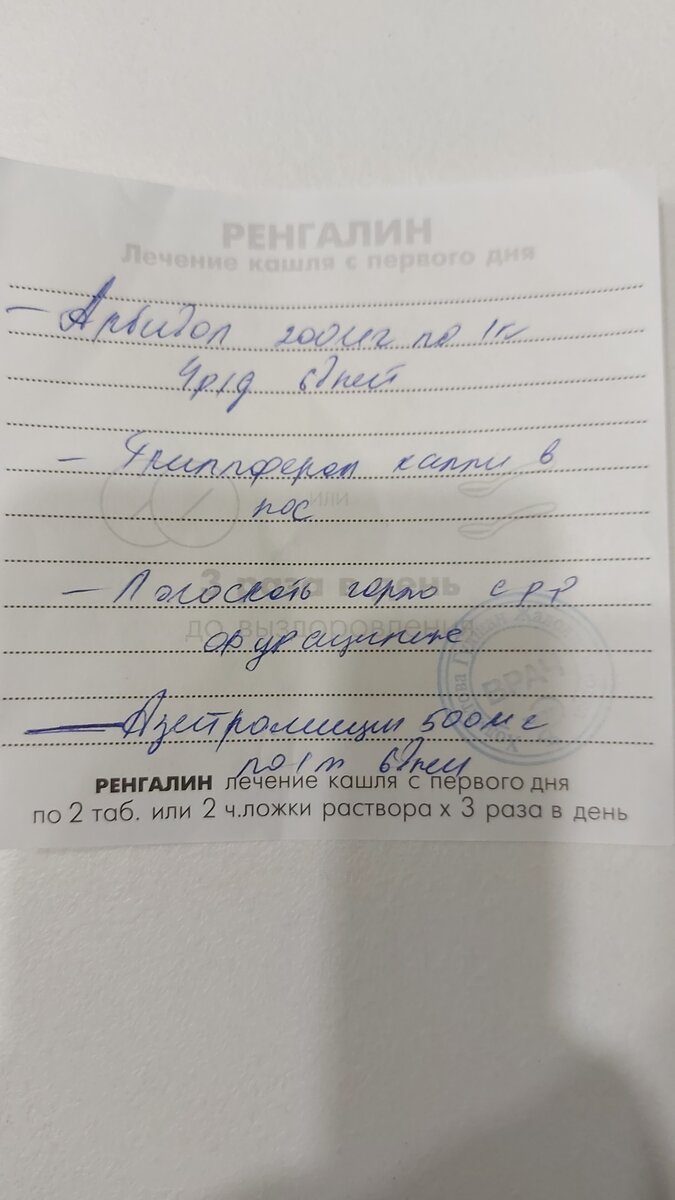 РЕНГАЛИН
Лечение кашля с первого дня
- Арбидол 200мг по 1к
4 р/д 6 дней
- Гриппферон капли в
нос
или
- Полоскать горло с р-р
3 раза в день
фурацилине
до выздоровления
ВРАЧ
- Азитромицин 500мг
по 1 т 6 дней
РЕНГАЛИН лечение кашля с первого дня
по 2 таб. или 2 ч.ложки раствора х 3 раза в день